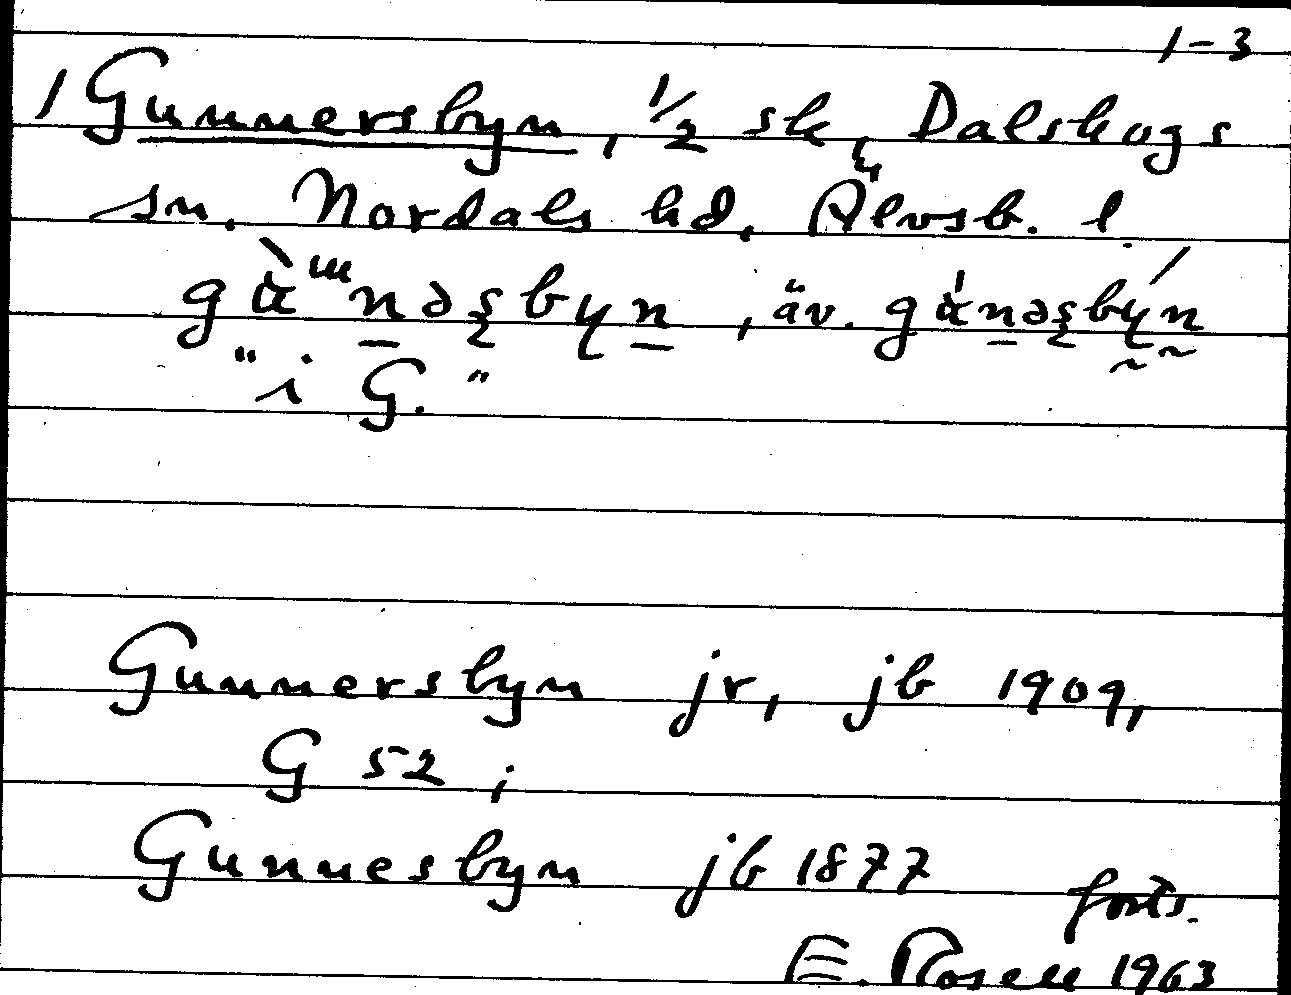 1-3
1 Gunnersbyn, 1/2 sk, Dalskogs
sn, Nordals hd, Älvsb. l.
, äv.
"i G."
Gunnersbyn jr, jb 1909,
G 52;
Gunnesbyn jb 1877
forts.
E. Rosell 1963